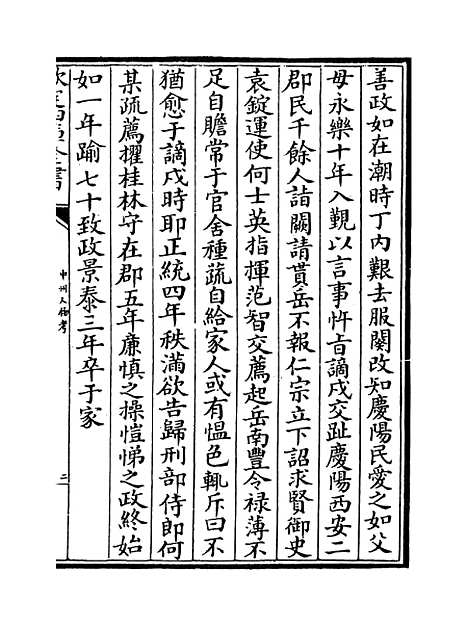 善政如在潮時丁内艱去服闋改知慶陽民愛之如父
母永樂十年入覲以言事忤㫖謫戍交趾慶陽西安二
郡民千餘人詣闕請貰岳不報仁宗立下詔求賢御史
袁錠運使何士英指揮范智交薦起岳南豐令禄薄不
足自贍常于官舍種蔬自給家人或有愠色輒斥曰不
猶愈于謫戍時耶正統四年秩滿欲告歸刑部侍郎何
某疏薦擢桂林守在郡五年廉慎之操愷悌之政終始
如一年踰七十致政景泰三年卒于家
欽定四庫全書
中州人物考